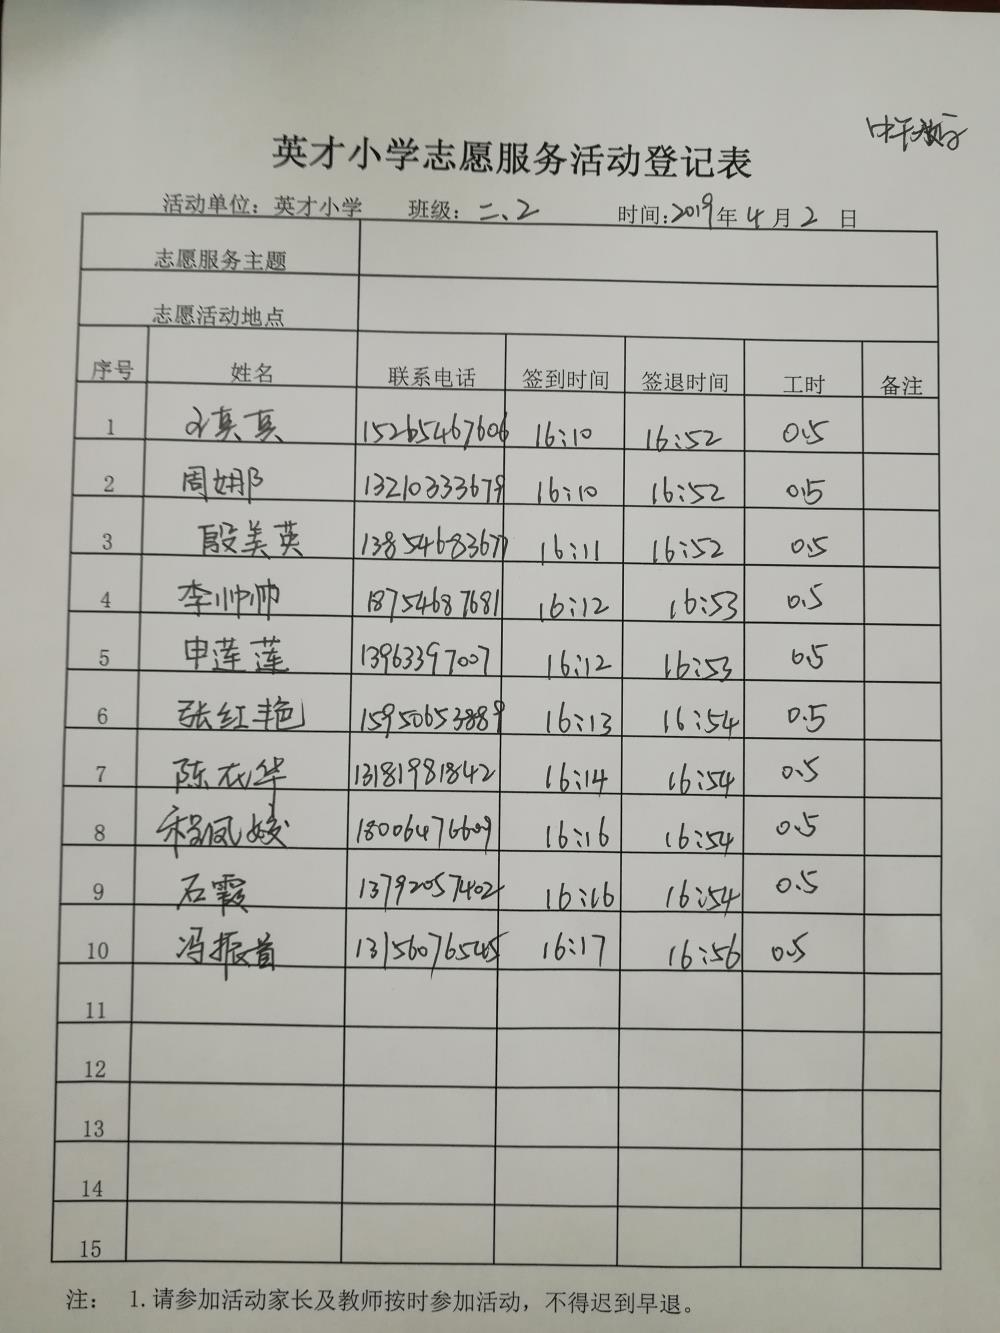 英才小学志愿服务活动登记表
活动单位：英才小学 班级：二、2 时间：2019年4月2日
志愿服务主题
志愿活动地点
序号 姓名 联系电话 签到时间 签退时间 工时 备注
1 真真 15265467606 16:10 16:52 0.5
2 周娜 13210333679 16:10 16:52 0.5
3 殷美英 13854683677 16:11 16:52 0.5
4 李帅帅 18754687681 16:12 16:53 0.5
5 申莲莲 13963397007 16:12 16:53 0.5
6 张红艳 15950653889 16:13 16:54 0.5
7 陈衣华 13181981842 16:14 16:54 0.5
8 程凤姣 18006476609 16:16 16:54 0.5
9 石霞 13792057402 16:16 16:54 0.5
10 冯振首 13156076545 16:17 16:56 0.5
11
12
13
14
15
注： 1.请参加活动家长及教师按时参加活动，不得迟到早退。